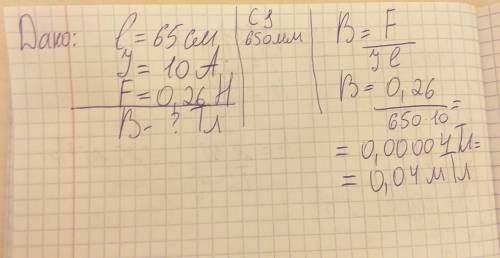 Дано:
l = 65 см
J = 10 А
F = 0,26 Н
B - ? Тл
СЯ
650мм
B = F / J l
B = 0,26 / 650·10 =
= 0,00004 Тл =
= 0,04 мТл